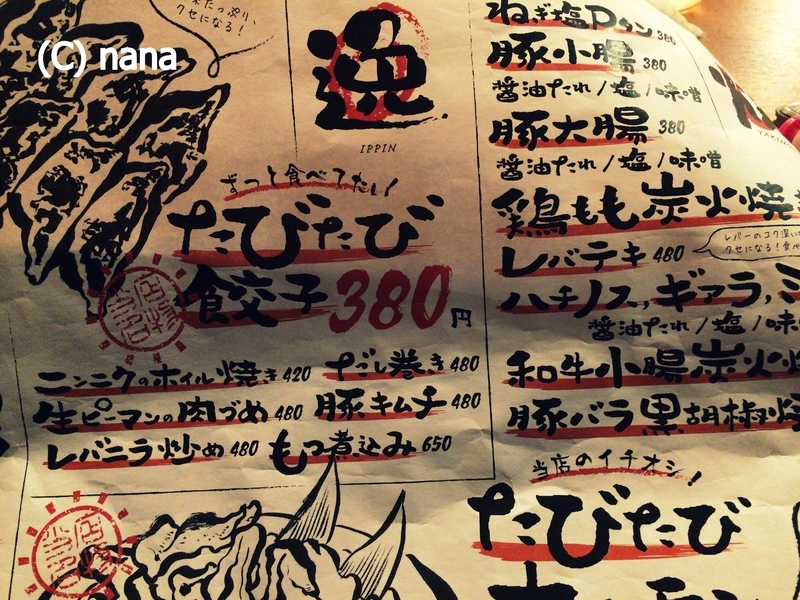 (C) nana
クセになる!
逸
IPPIN
ずっと食べてたい!
たびたび
餃子380円
ニンニクのホイル焼き 420
すごし巻き 480
生ピーマンの肉づめ 480
豚キムチ 480
レバニラ炒め 480
もつ煮込み 650
ねぎ塩Pタン 380
豚小腸 380
醤油たれ/塩/味噌
豚大腸 380
醤油たれ/塩/味噌
鶏もも炭火焼
レバテキ 480
レバーのコク深い
クセになる!食べ
ハチノス、ギアラ、ミ
醤油たれ/塩/味
和牛小腸炭火
豚バラ黒胡椒焼
当店のイチオシ!
たびたび